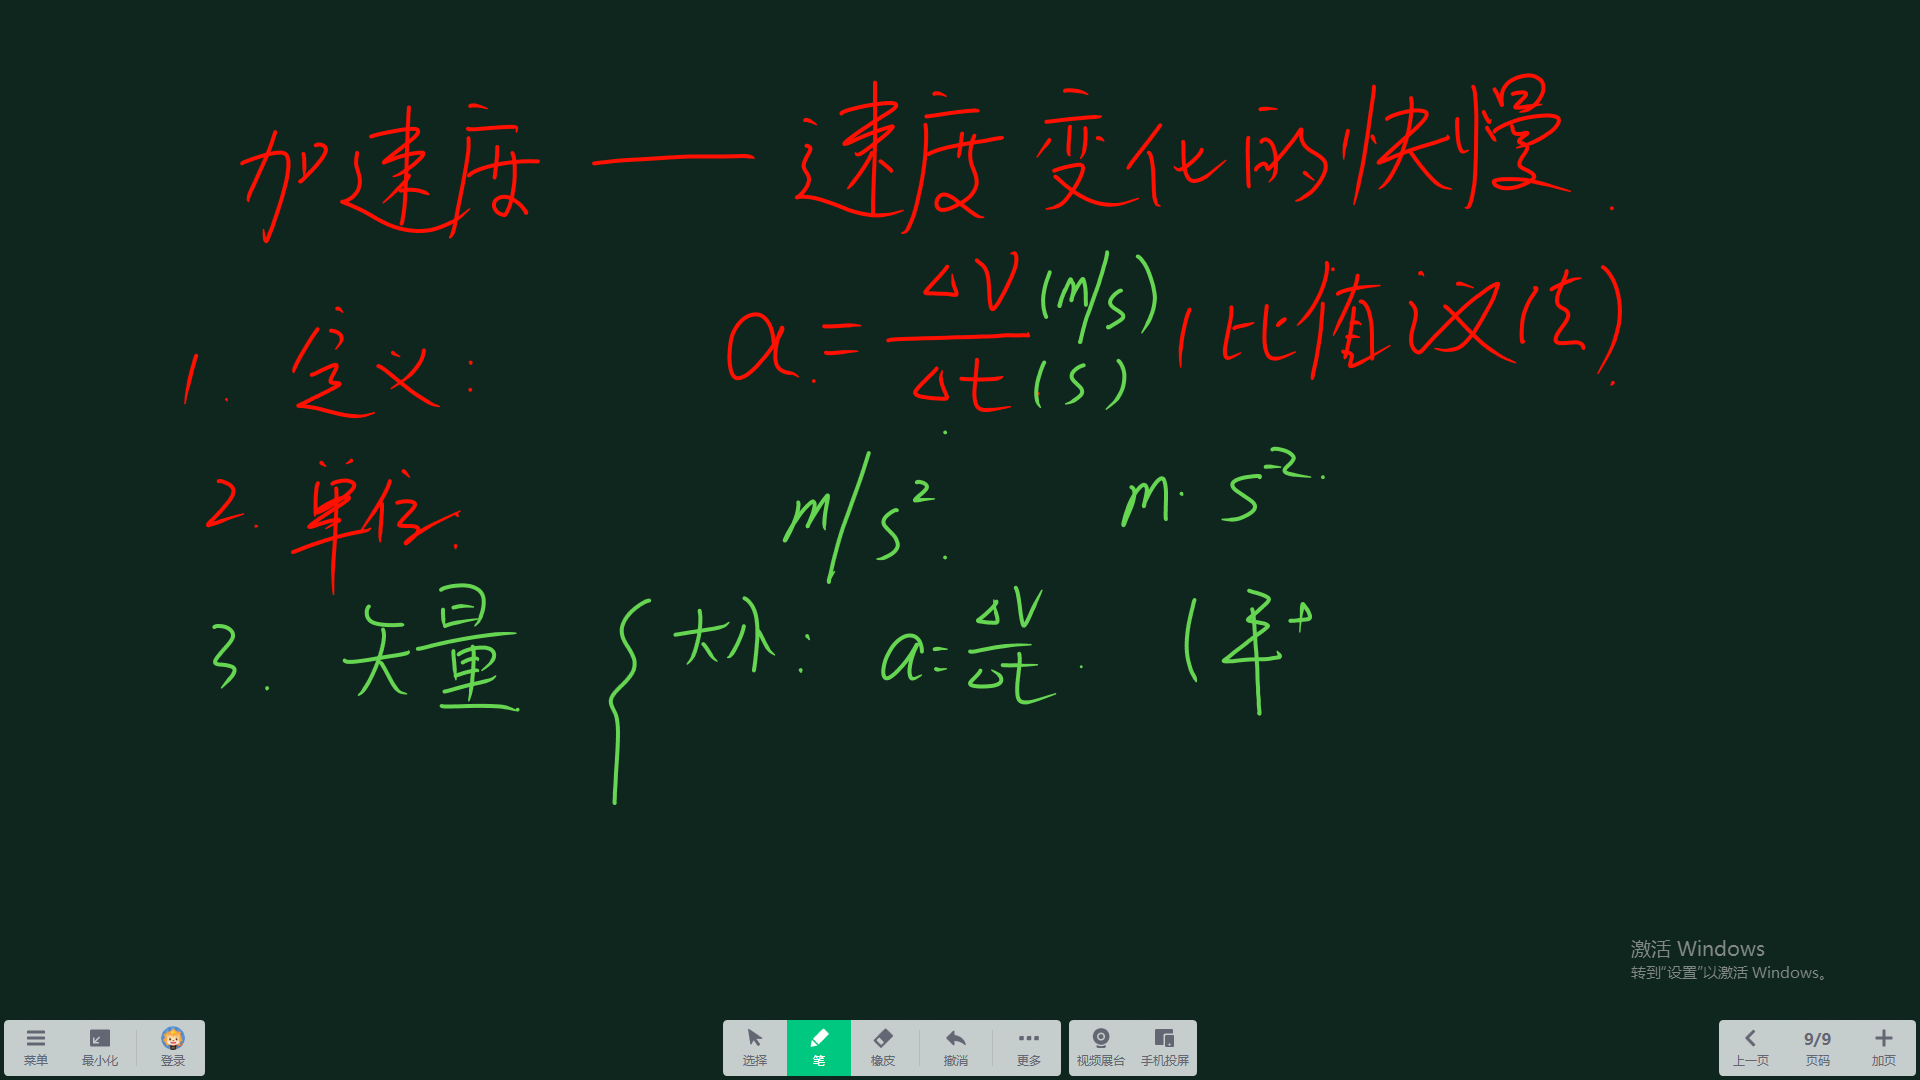 加速度——速度变化的快慢.
1. 定义: a = ΔV(m/s)/Δt(s) (比值定义法).
2. 单位. m/s². m·s⁻².
3. 矢量 { 大小: a = ΔV/Δt. (
激活 Windows
转到“设置”以激活 Windows。
菜单 最小化 登录 选择 笔 橡皮 撤消 更多 视频展台 手机投屏 上一页 9/9 页码 加页